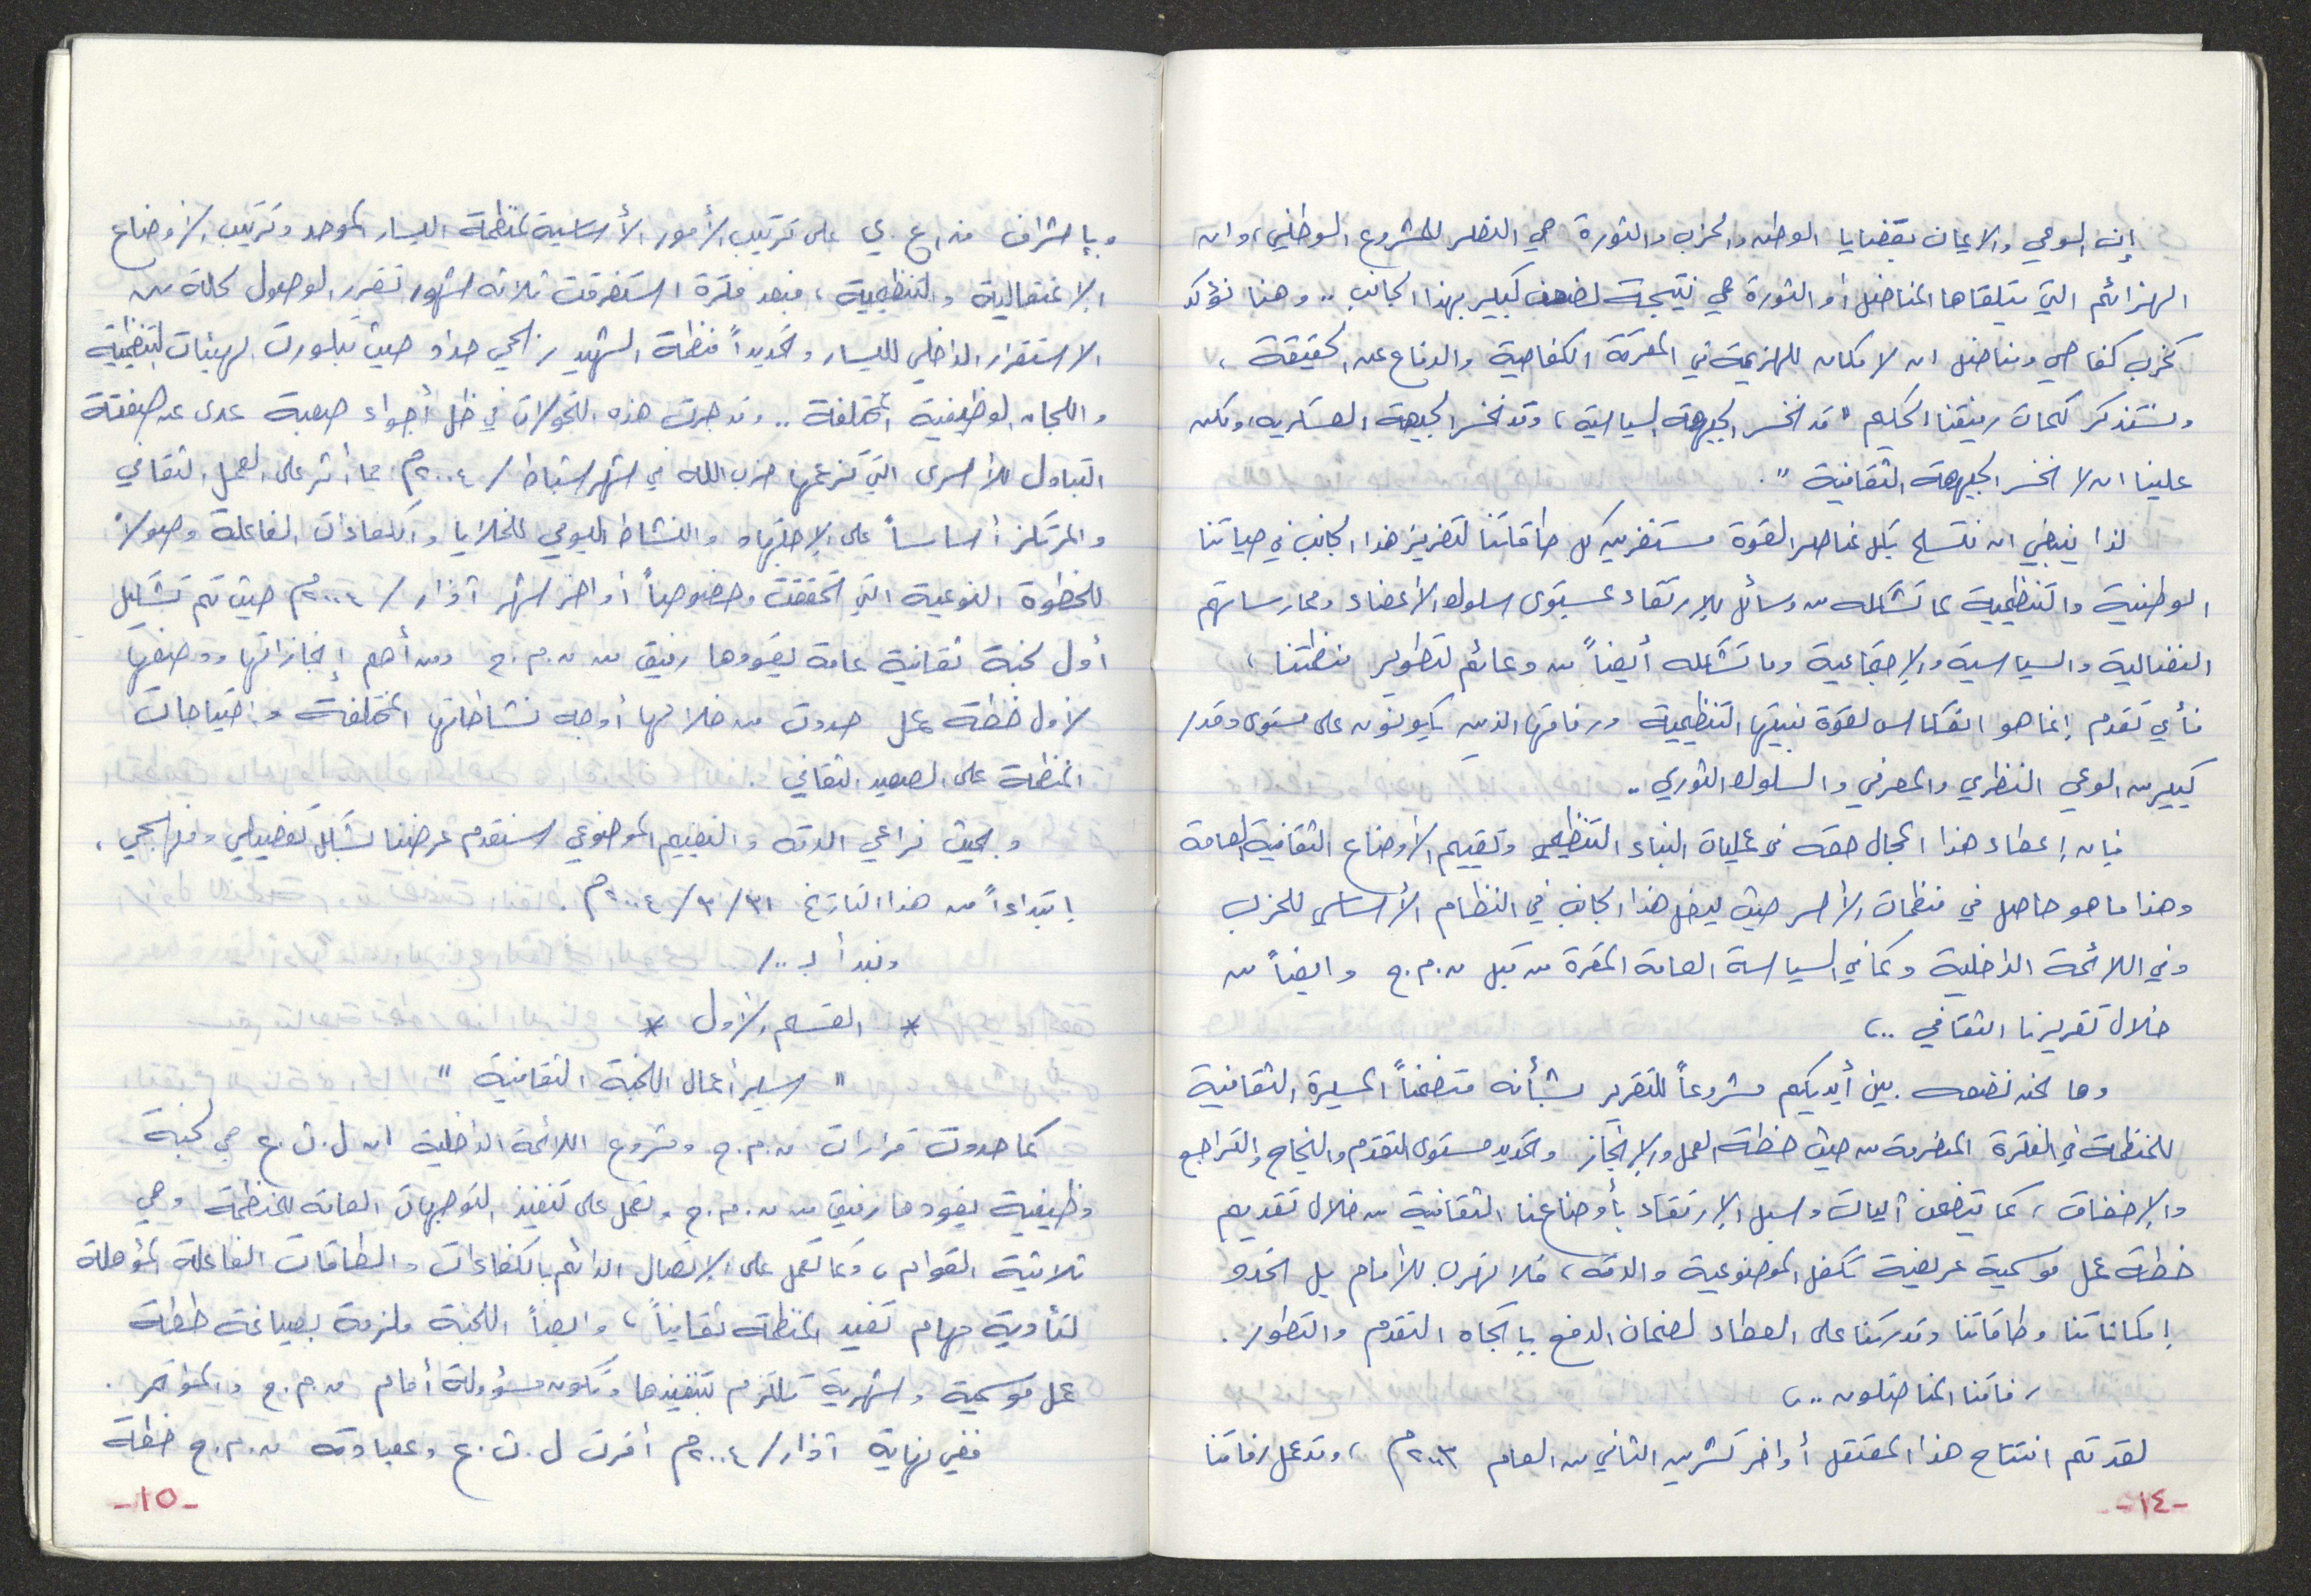 إن الوعي والايمان بقضايا الوطن والحزب والثورة هي النصر للمشروع الوطني، وان
الهزائم التي يتلقاها المناضل أو الثورة هي نتيجة لضعف كبير بهذا الجانب .. وهنا نؤكد
كحزب كفاحي ومناضل ان لا مكان للهزيمة في المعركة الكفاحية والدفاع عن الحقيقة ،
ولنتذكر كلمات رفيقنا الحكيم " قد نخسر الجبهة السياسية ، وقد نخسر الجبهة العسكرية، ولكن
علينا ان لا نخسر الجبهة الثقافية " .
لذا ينبغي ان نتسلح بكل عناصر القوة مستنفرين كل طاقاتنا لتعزيز هذا الجانب في حياتنا
الوطنية والتنظيمية بما تشكله من وسائل للارتقاء بمستوى سلوك الأعضاء وممارساتهم
النضالية والسياسية والإجتماعية وما تشكله أيضاً من دعائم لتطوير منظمتنا ،
فأي تقدم إنما هو انعكاس لقوة بنيتها التنظيمية ورفاقها الذين يكونون على مستوى وقدر
كبير من الوعي النظري والمعرفي والسلوك الثوري ..
فإن إعطاء هذا المجال حقه في عمليات البناء التنظيمي وتقييم الأوضاع الثقافية العامة
وهذا ما هو حاصل في منظمات الأسر حيث يدخل هذا الجانب في النظام الأساسي للحزب
وفي اللائحة الداخلية وكما في السياسة العامة المقرة من قبل ن.م.ح وايضاً من
خلال تقريرنا الثقافي ..،
وها نحن نضعه بين أيديكم مشروعاً للتقرير بشأنه متضمناً المسيرة الثقافية
للمنظمة في الفترة المنصرمة من حيث خطة العمل والإنجاز وتحديد مستوى التقدم والنجاح والتراجع
والإخفاق ، كما يتضمن آليات وسبل الإرتقاء بأوضاعنا الثقافية من خلال تقديم
خطة عمل موسمية عريضة تكفل الموضوعية والدقة ، فلا نهرب للأمام بل نحدد
إمكاناتنا وطاقاتنا وقدرتنا على العطاء لضمان الدفع بإتجاه التقدم والتطور .
رفاقنا المناضلون ..،
لقد تم افتتاح هذا المعتقل أواخر تشرين الثاني من العام ٢٠٠٣م ، وقد عمل رفاقنا
-١٤-
وبإشراف من ع.ي على ترتيب الأمور الأساسية لمنظمة اليسار الموحد وترتيب الأوضاع
الإعتقالية والتنظيمية ، فبعد فترة استغرقت ثلاثة شهور تقرر الوصول لحالة من
الاستقرار الداخلي لليسار وتحديداً منظمة الشهيد ربحي حداد حيث تبلورت الهيئات التنظيمية
واللجان الوظيفية المختلفة .. وقد جرت هذه التحولات في ظل أجواء صعبة عدى عن صفقة
التبادل للأسرى التي تزعمها حزب الله في شهر شباط / ٢٠٠٤م مما أثر على العمل الثقافي
والمرتكز أساساً على الإجتهاد والنشاط اليومي للخلايا والكفاءات الفاعلة وصولاً
للخطوة النوعية التي تحققت وخصوصاً أواخر شهر آذار / ٢٠٠٤م حيث تم تشكيل
أول لجنة ثقافية عامة يقودها رفيق من ن.م.ح ومن أهم إنجازاتها ووضعها
لأول خطة عمل حددت من خلالها أوجه نشاطاتها المختلفة واحتياجات
المنظمة على الصعيد الثقافي .
وبحيث نراعي الدقة والتقييم الموضوعي سنقدم عرضنا بشكل تفصيلي ومنهجي ،
إبتداءاً من هذا التاريخ ٣١/٣/٢٠٠٤م .
ونبدأ بـ ../
* القسم الأول *
" سير أعمال اللجنة الثقافية "
كما حددت قرارات ن.م.ح ومشروع اللائحة الداخلية ان ل.ث.ع هي لجنة
وظيفية يقودها رفيق من ن.م.ح وتعمل على تنفيذ التوجهات العامة للمنظمة وهي
ثلاثية القوام ، وكما تعمل على الإتصال الدائم بالكفاءات والطاقات الفاعلة المؤهلة
لتأدية مهام تفيد المنظمة ثقافياً ، وايضاً اللجنة ملزمة بصياغة خطة
عمل موسمية وشهرية تلتزم بتنفيذها وتكون مسؤولة أمام ن.م.ح والمؤتمر .
ففي نهاية آذار / ٢٠٠٤م أقرت ل.ث.ع وبمصادقة ن.م.ح خطة
-١٥-